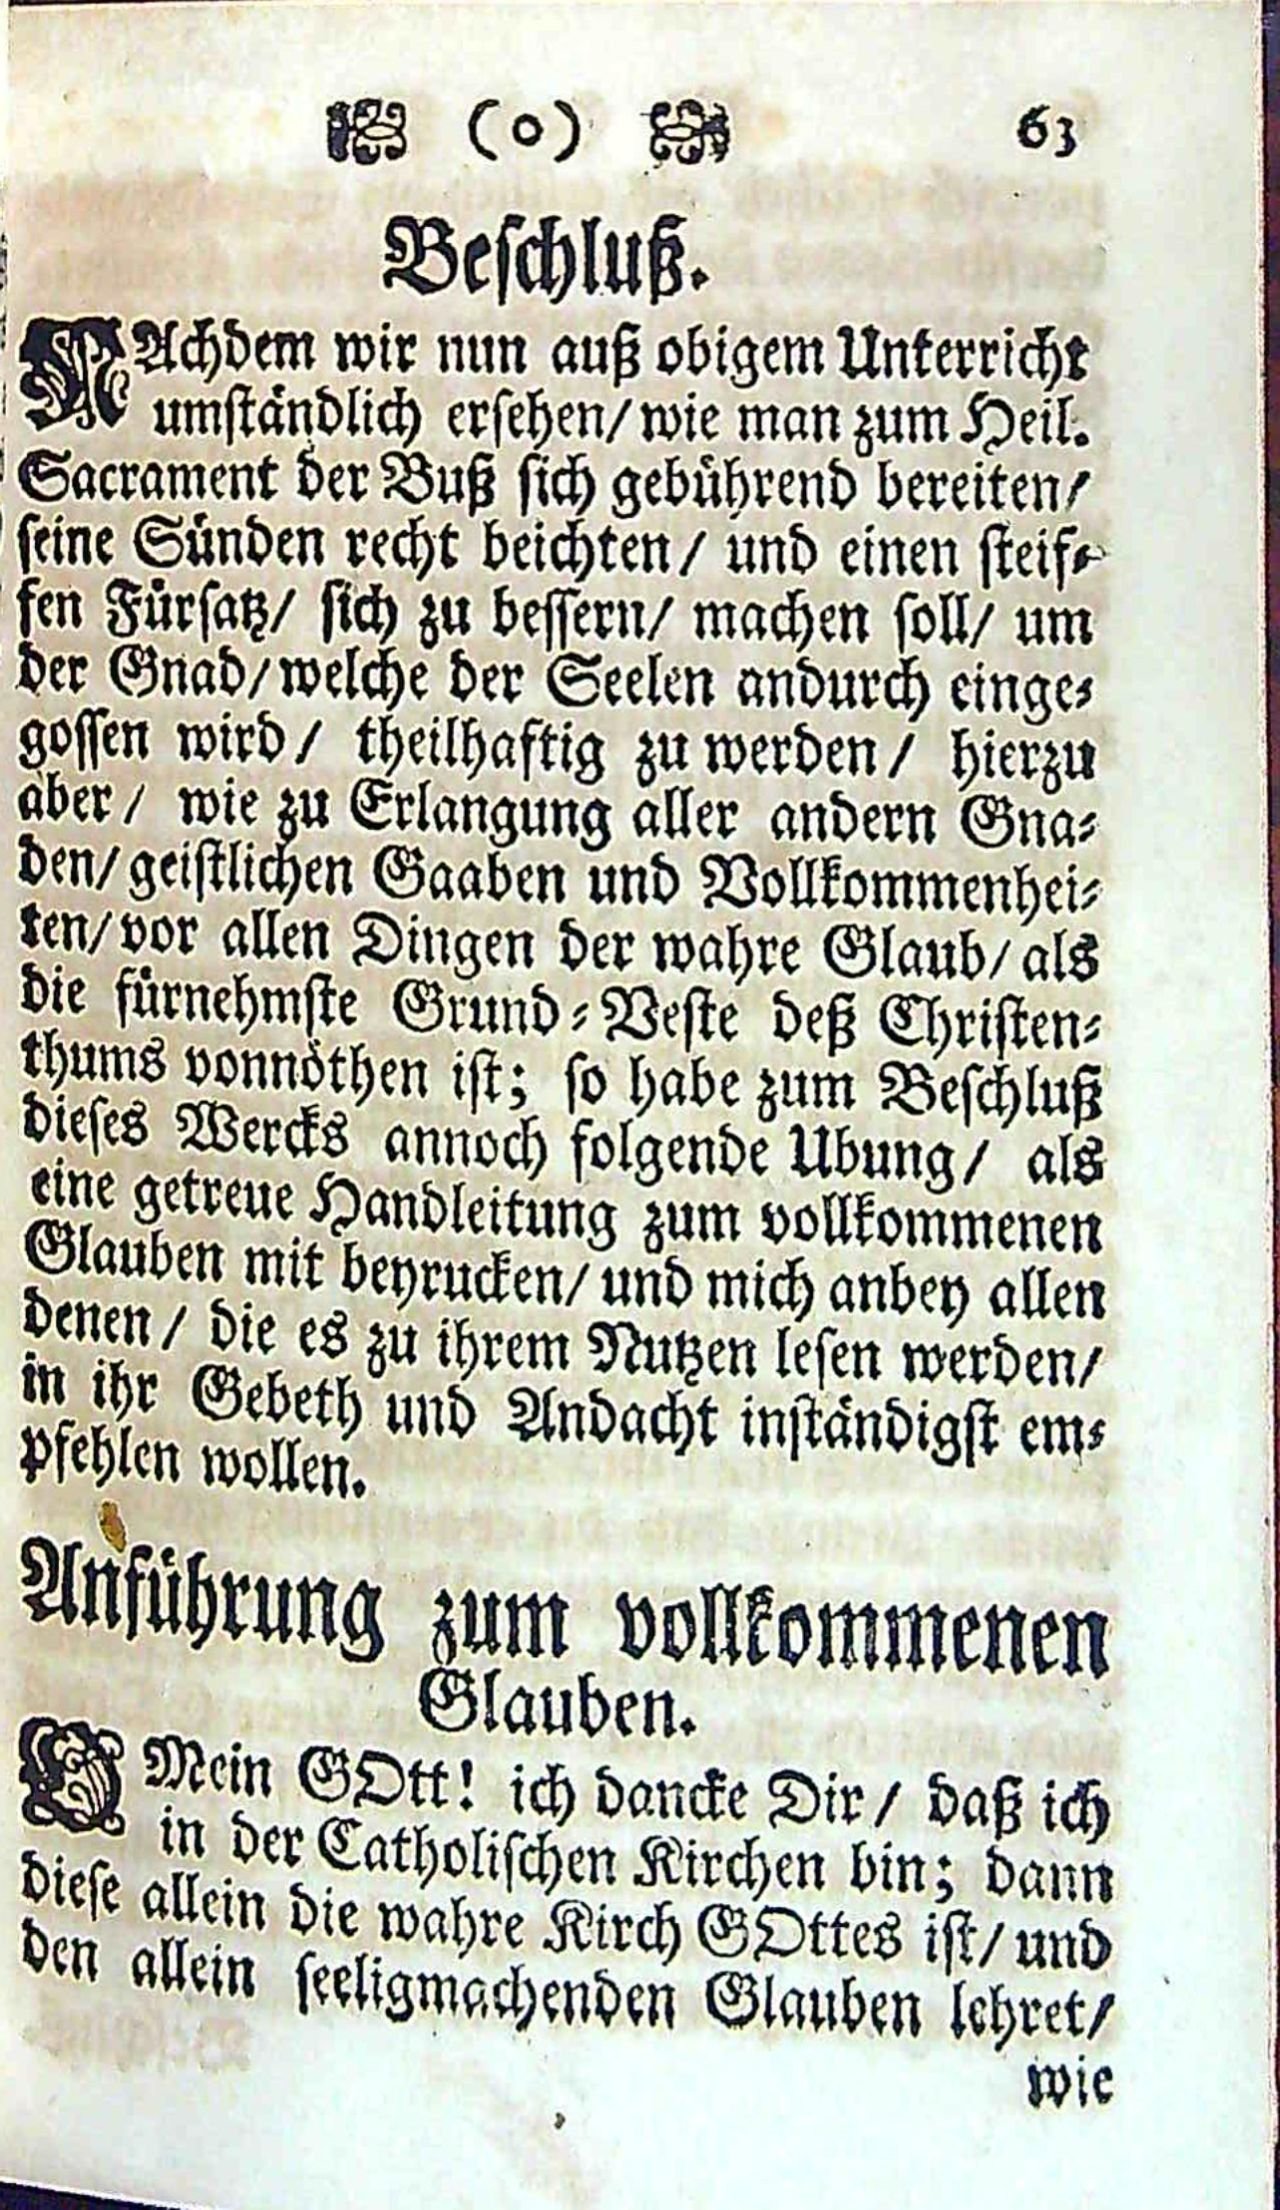 (o) 63
Beschluß.
NAchdem wir nun auß obigem Unterricht
umständlich ersehen/ wie man zum Heil.
Sacrament der Buß sich gebührend bereiten/
seine Sünden recht beichten/ und einen steif-
fen Fürsatz/ sich zu bessern/ machen soll/ um
der Gnad/ welche der Seelen andurch einge-
gossen wird/ theilhaftig zu werden/ hierzu
aber/ wie zu Erlangung aller andern Gna-
den/ geistlichen Gaaben und Vollkommenhei-
ten/ vor allen Dingen der wahre Glaub/ als
die fürnehmste Grund-Veste deß Christen-
thums vonnöthen ist; so habe zum Beschluß
dieses Wercks annoch folgende Ubung/ als
eine getreue Handleitung zum vollkommenen
Glauben mit beyrucken/ und mich anbey allen
denen/ die es zu ihrem Nutzen lesen werden/
in ihr Gebeth und Andacht inständigst em-
pfehlen wollen.
Anführung zum vollkommenen
Glauben.
O Mein GOtt! ich dancke Dir/ daß ich
in der Catholischen Kirchen bin; dann
diese allein die wahre Kirch GOttes ist/ und
den allein seeligmachenden Glauben lehret/
wie